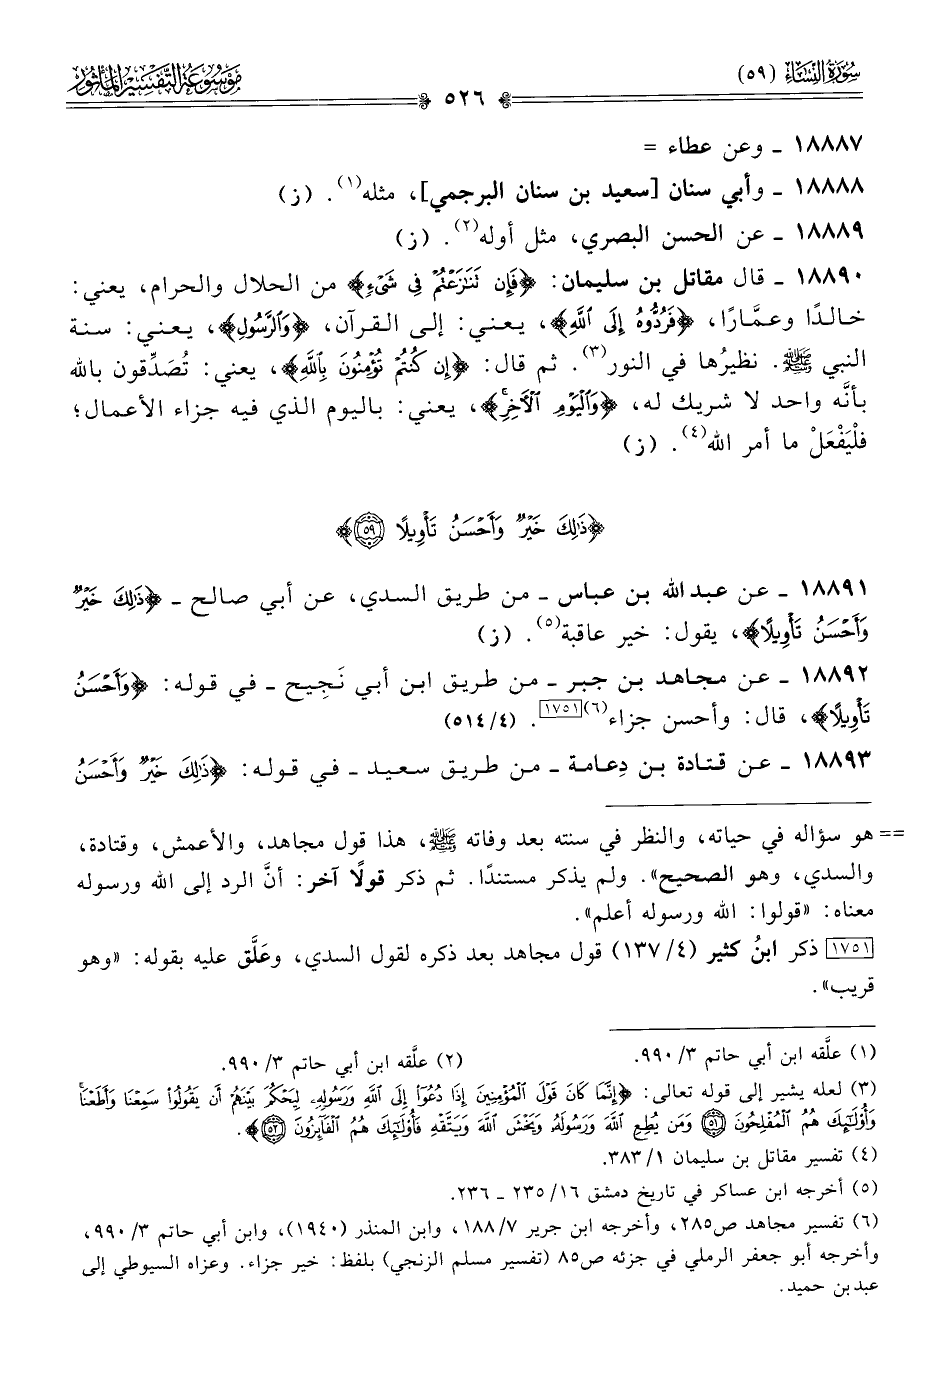 سورة النساء (٥٩)
موسوعة التفسير المأثور
٥٢٦
١٨٨٨٧ ـ وعن عطاء =
١٨٨٨٨ ـ وأبي سنان [سعيد بن سنان البرجمي]، مثله(١). (ز)
١٨٨٨٩ ـ عن الحسن البصري، مثل أوله(٢). (ز)
١٨٨٩٠ ـ قال مقاتل بن سليمان: ﴿فَإِن تَنَٰزَعۡتُمۡ فِي شَيۡءٖ﴾ من الحلال والحرام، يعني:
خالدًا وعمَّارًا، ﴿فَرُدُّوهُ إِلَى ٱللَّهِ﴾، يعني: إلى القرآن، ﴿وَٱلرَّسُولِ﴾، يعني: سنة
النبي ﷺ. نظيرُها في النور(٣). ثم قال: ﴿إِن كُنتُمۡ تُؤۡمِنُونَ بِٱللَّهِ﴾، يعني: تُصَدِّقون بالله
بأنَّه واحد لا شريك له، ﴿وَٱلۡيَوۡمِ ٱلۡأٓخِرِ﴾، يعني: باليوم الذي فيه جزاء الأعمال؛
فلْيَفْعَلْ ما أمر الله(٤). (ز)
﴿ذَٰلِكَ خَيۡرٞ وَأَحۡسَنُ تَأۡوِيلًا ٥٩﴾
١٨٨٩١ ـ عن عبد الله بن عباس ـ من طريق السدي، عن أبي صالح ـ ﴿ذَٰلِكَ خَيۡرٞ
وَأَحۡسَنُ تَأۡوِيلًا﴾، يقول: خير عاقبة(٥). (ز)
١٨٨٩٢ ـ عن مجاهد بن جبر ـ من طريق ابن أبي نَجِيح ـ في قوله: ﴿وَأَحۡسَنُ
تَأۡوِيلًا﴾، قال: وأحسن جزاء(٦)[١٧٥١]. (٥١٤/٤)
١٨٨٩٣ ـ عن قتادة بن دِعامة ـ من طريق سعيد ـ في قوله: ﴿ذَٰلِكَ خَيۡرٞ وَأَحۡسَنُ
== هو سؤاله في حياته، والنظر في سنته بعد وفاته ﷺ، هذا قول مجاهد، والأعمش، وقتادة،
والسدي، وهو الصحيح». ولم يذكر مستندًا. ثم ذكر قولًا آخر: أنَّ الرد إلى الله ورسوله
معناه: «قولوا: الله ورسوله أعلم».
[١٧٥١] ذكر ابنُ كثير (١٣٧/٤) قول مجاهد بعد ذكره لقول السدي، وعَلَّق عليه بقوله: «وهو
قريب».
(١) علَّقه ابن أبي حاتم ٩٩٠/٣. (٢) علَّقه ابن أبي حاتم ٩٩٠/٣.
(٣) لعله يشير إلى قوله تعالى: ﴿إِنَّمَا كَانَ قَوۡلَ ٱلۡمُؤۡمِنِينَ إِذَا دُعُوٓاْ إِلَى ٱللَّهِ وَرَسُولِهِۦ لِيَحۡكُمَ بَيۡنَهُمۡ أَن يَقُولُواْ سَمِعۡنَا وَأَطَعۡنَاۚ
وَأُوْلَٰٓئِكَ هُمُ ٱلۡمُفۡلِحُونَ ٥١ وَمَن يُطِعِ ٱللَّهَ وَرَسُولَهُۥ وَيَخۡشَ ٱللَّهَ وَيَتَّقۡهِ فَأُوْلَٰٓئِكَ هُمُ ٱلۡفَآئِزُونَ ٥٢﴾.
(٤) تفسير مقاتل بن سليمان ٣٨٣/١.
(٥) أخرجه ابن عساكر في تاريخ دمشق ٢٣٥/١٦ ـ ٢٣٦.
(٦) تفسير مجاهد ص٢٨٥، وأخرجه ابن جرير ١٨٨/٧، وابن المنذر (١٩٤٠)، وابن أبي حاتم ٩٩٠/٣،
وأخرجه أبو جعفر الرملي في جزئه ص٨٥ (تفسير مسلم الزنجي) بلفظ: خير جزاء. وعزاه السيوطي إلى
عبد بن حميد.